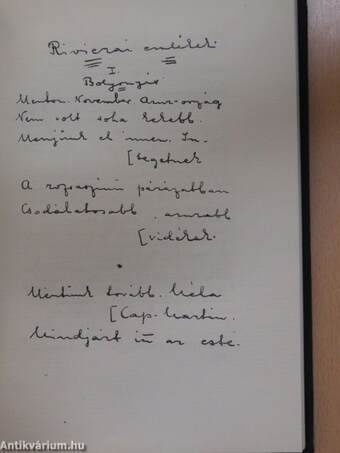 Rivierai emlékek
I
Bolyongás
Menton. November. Azur-ország
Nem volt soha kékebb.
Menjünk el innen. Int
[ segetnek
A rózsaszínű párázatban
Csodálatosabb, azurabb
[ vidékek.
Mentünk tovább. Méla
[ Cap-Martin.
Mindjárt itt az este.
Antikvárium.hu